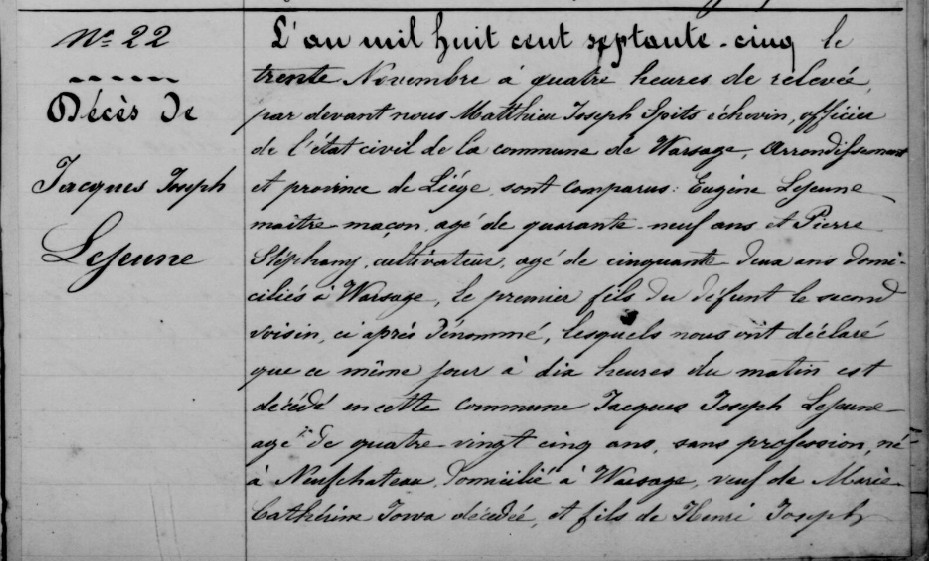 N° 22
Décès de
Jacques Joseph
Lejeune
L'an mil huit cent septante-cinq le
trente Novembre à quatre heures de relevée,
par devant nous Matthieu Joseph Spits échevin, officier
de l'état civil de la commune de Warsage, arrondissement
et province de Liége, sont comparus: Eugène Lejeune
maître maçon, agé de quarante-neuf ans et Pierre
Stéphany, cultivateur, agé de cinquante deux ans domi-
ciliés à Warsage, le premier fils du défunt le second
voisin, ci après dénommé, lesquels nous ont déclaré
que ce même jour à dix heures du matin est
décédé en cette commune Jacques Joseph Lejeune
agé de quatre-vingt cinq ans, sans profession, né
à Neufchateau, domicilié à Warsage, veuf de Marie
Cathérine Iowa décédée, et fils de Henri Joseph